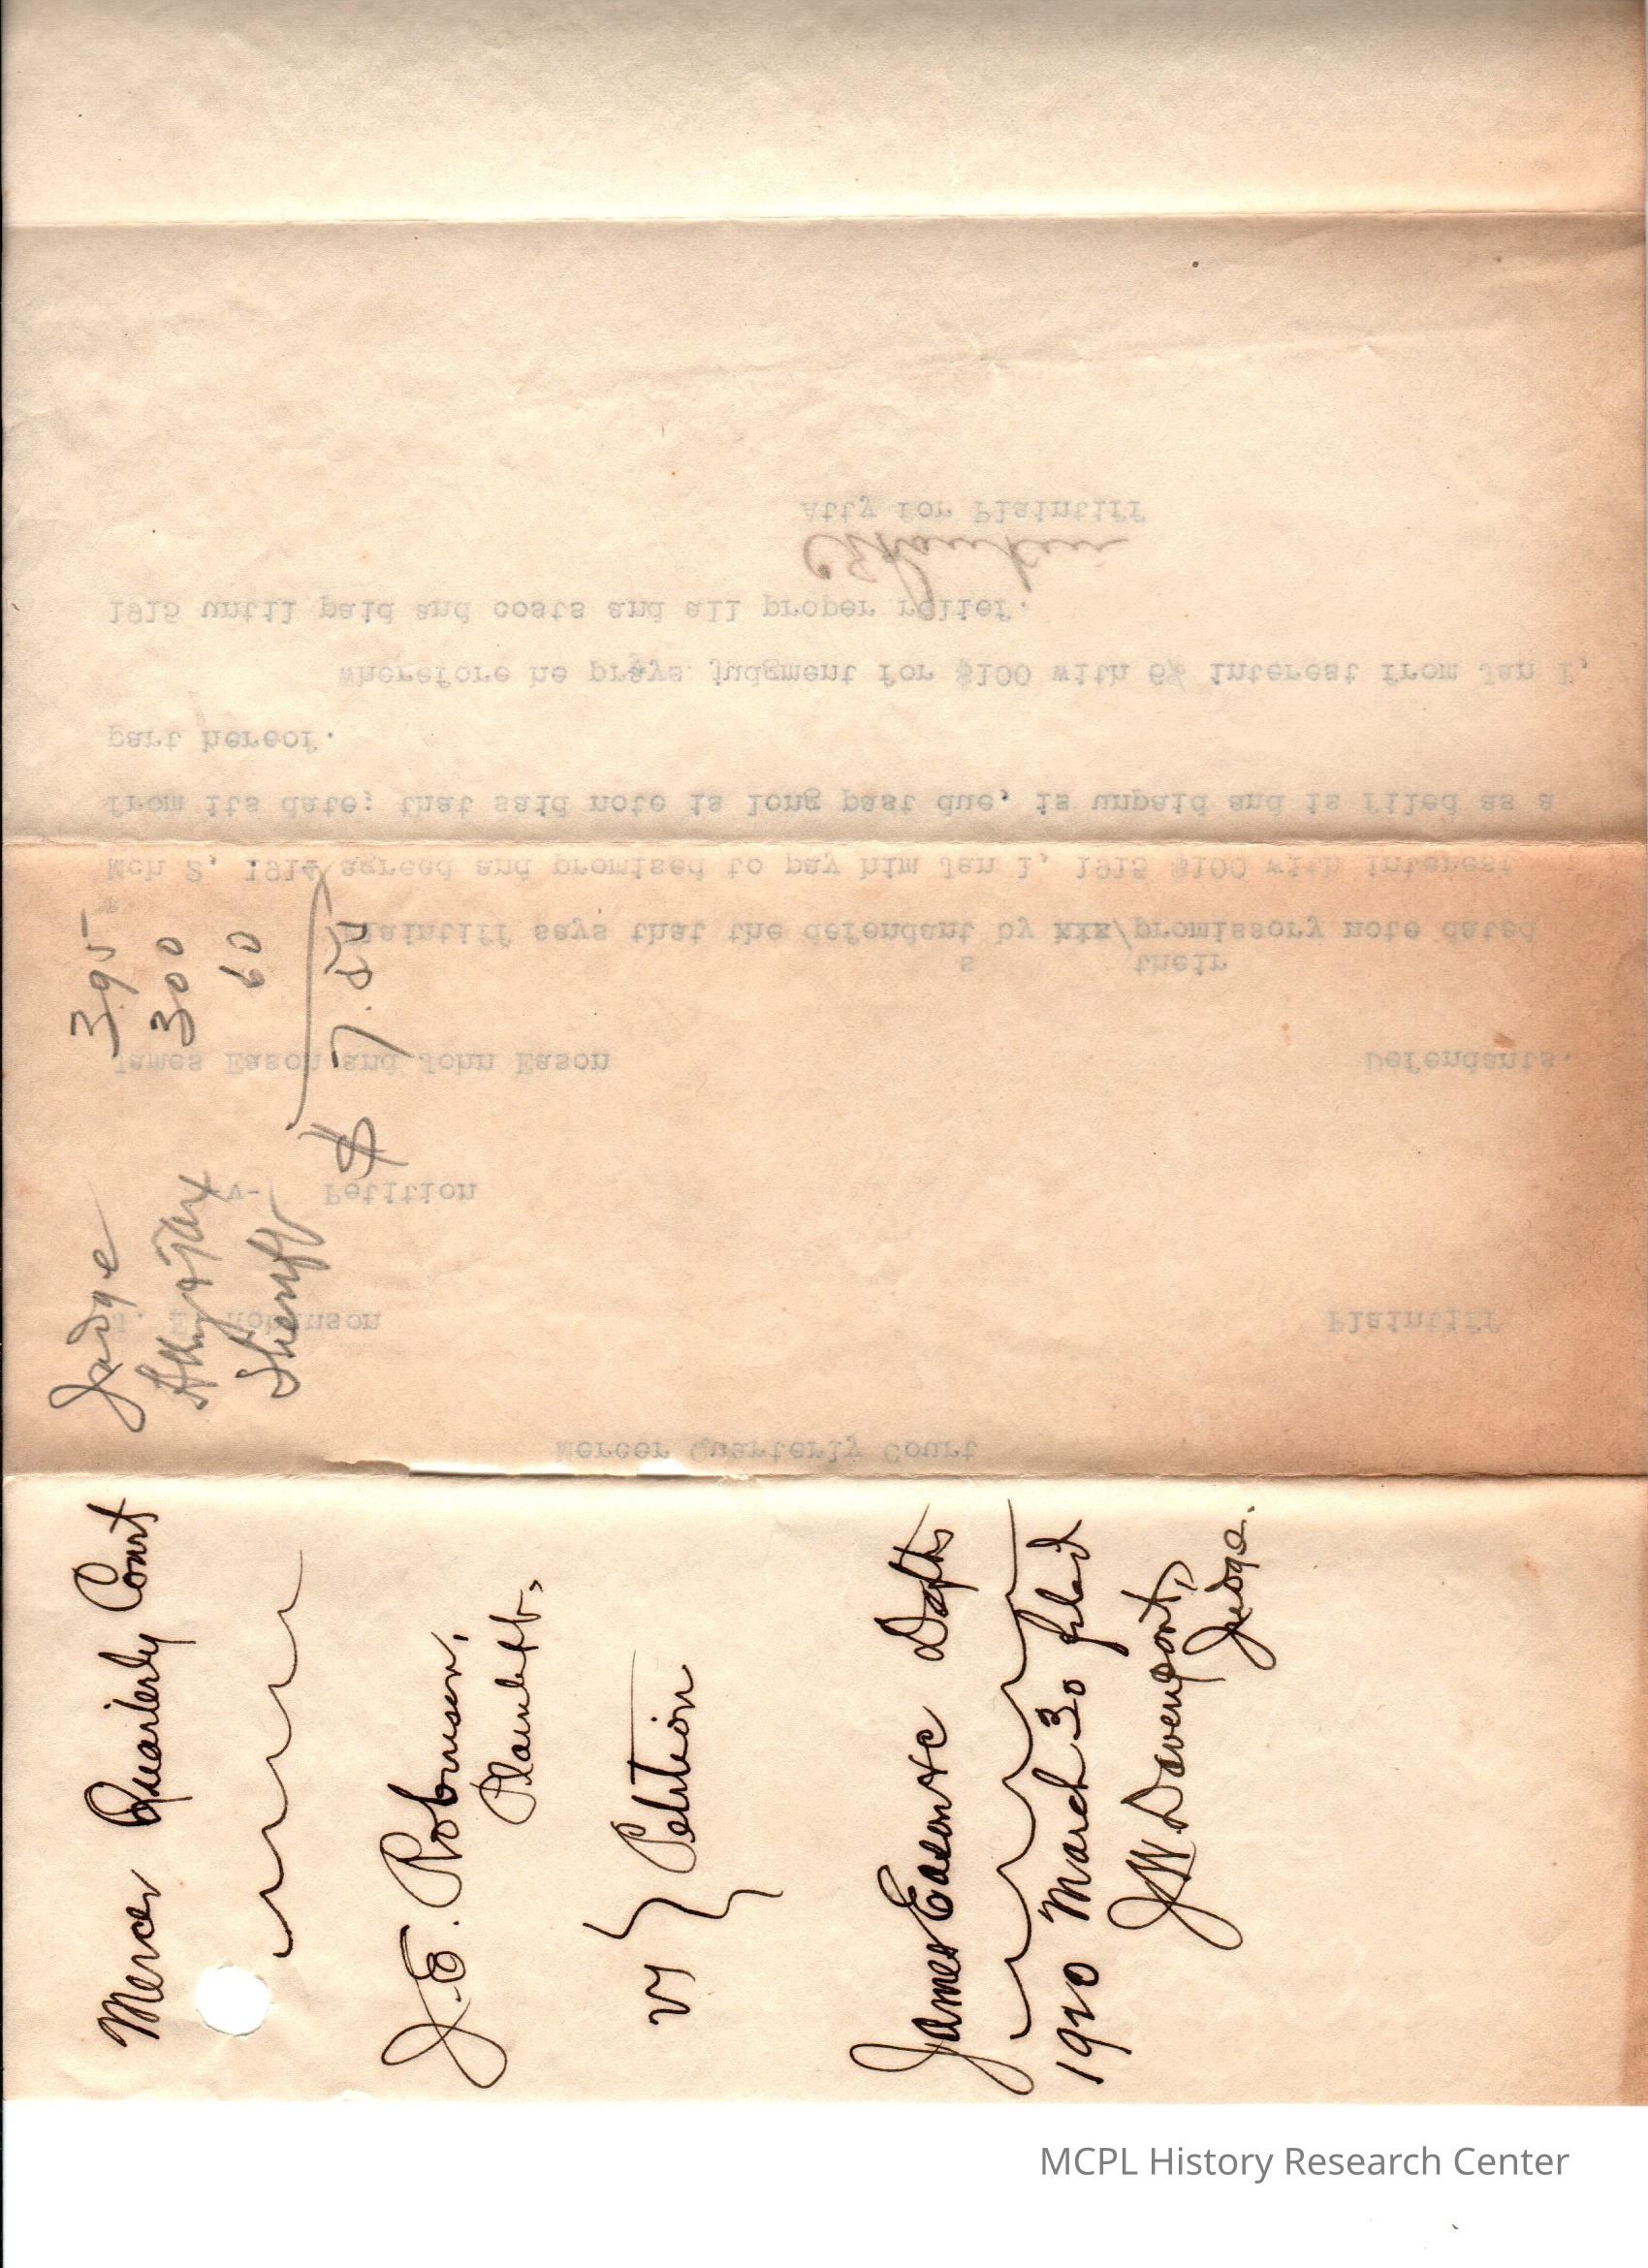 Mercer Quarterly Court
J. E. Robinson,
Plaintiff,
vs } Petition
James Eason &c Defts
1920 March 30 filed
J W Davenport,
Judge.
Judge 3.95
Atty & Tax 3 00
Sheriff 60
$ 7.55
Mercer Quarterly Court
J. E. Robinson Plaintiff
-v- Petition
James Eason and John Eason Defendants.
s their
Plaintiff says that the defendant by xxx/promissory note dated
Mch 2, 1914 agreed and promised to pay him Jan 1, 1915 $100 with interest
from its date; that said note is long past due, is unpaid and is filed as a
part hereof.
Wherefore he prays judgment for $100 with 6% interest from Jan 1,
1915 until paid and costs and all proper relief.
Atty for Plaintiff
MCPL History Research Center